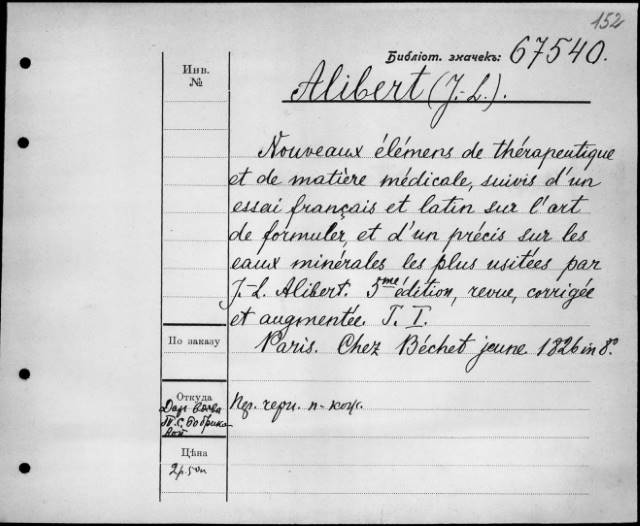 152
Библіот. значекъ: 67540.
Инв.
№
Alibert (J.-L.).
Nouveaux élémens de thérapeutique
et de matière médicale, suivis d'un
essai français et latin sur l'art
de formuler, et d'un précis sur les
eaux minérales les plus usitées par
J.-L. Alibert. 5me édition, revue, corrigée
et augmentée. T. I.
По заказу
Paris. Chez Béchet jeune. 1826 in 8º.
Откуда
Цѣна